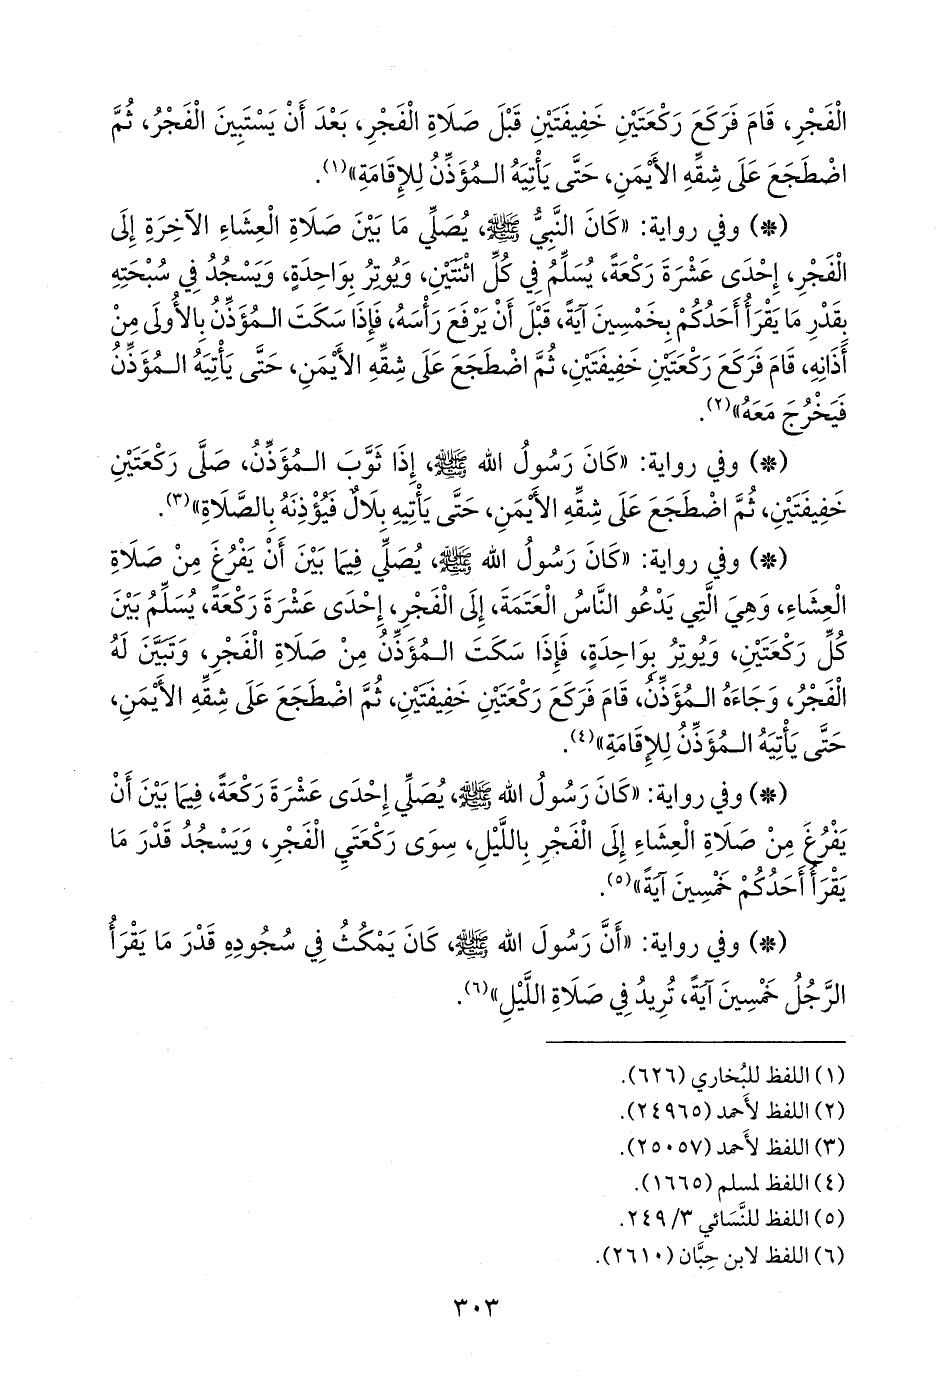 الْفَجْرِ، قَامَ فَرَكَعَ رَكْعَتَيْنِ خَفِيفَتَيْنِ قَبْلَ صَلَاةِ الْفَجْرِ، بَعْدَ أَنْ يَسْتَبِينَ الْفَجْرُ، ثُمَّ
اضْطَجَعَ عَلَى شِقِّهِ الأَيْمَنِ، حَتَّى يَأْتِيَهُ الْمُؤَذِّنُ لِلإِقَامَةِ»(١).
(*) وفي رواية: «كَانَ النَّبِيُّ ﷺ، يُصَلِّي مَا بَيْنَ صَلَاةِ الْعِشَاءِ الآخِرَةِ إِلَى
الْفَجْرِ، إِحْدَى عَشْرَةَ رَكْعَةً، يُسَلِّمُ فِي كُلِّ اثْنَتَيْنِ، وَيُوتِرُ بِوَاحِدَةٍ، وَيَسْجُدُ فِي سُبْحَتِهِ
بِقَدْرِ مَا يَقْرَأُ أَحَدُكُمْ بِخَمْسِينَ آيَةً، قَبْلَ أَنْ يَرْفَعَ رَأْسَهُ، فَإِذَا سَكَتَ الْمُؤَذِّنُ بِالأُولَى مِنْ
أَذَانِهِ، قَامَ فَرَكَعَ رَكْعَتَيْنِ خَفِيفَتَيْنِ، ثُمَّ اضْطَجَعَ عَلَى شِقِّهِ الأَيْمَنِ، حَتَّى يَأْتِيَهُ الْمُؤَذِّنُ
فَيَخْرُجَ مَعَهُ»(٢).
(*) وفي رواية: «كَانَ رَسُولُ الله ﷺ، إِذَا ثَوَّبَ الْمُؤَذِّنُ، صَلَّى رَكْعَتَيْنِ
خَفِيفَتَيْنِ، ثُمَّ اضْطَجَعَ عَلَى شِقِّهِ الأَيْمَنِ، حَتَّى يَأْتِيهِ بِلَالٌ فَيُؤْذِنَهُ بِالصَّلَاةِ»(٣).
(*) وفي رواية: «كَانَ رَسُولُ الله ﷺ، يُصَلِّي فِيمَا بَيْنَ أَنْ يَفْرُغَ مِنْ صَلَاةِ
الْعِشَاءِ، وَهِيَ الَّتِي يَدْعُو النَّاسُ الْعَتَمَةَ، إِلَى الْفَجْرِ، إِحْدَى عَشْرَةَ رَكْعَةً، يُسَلِّمُ بَيْنَ
كُلِّ رَكْعَتَيْنِ، وَيُوتِرُ بِوَاحِدَةٍ، فَإِذَا سَكَتَ الْمُؤَذِّنُ مِنْ صَلَاةِ الْفَجْرِ، وَتَبَيَّنَ لَهُ
الْفَجْرُ، وَجَاءَهُ الْمُؤَذِّنُ، قَامَ فَرَكَعَ رَكْعَتَيْنِ خَفِيفَتَيْنِ، ثُمَّ اضْطَجَعَ عَلَى شِقِّهِ الأَيْمَنِ،
حَتَّى يَأْتِيَهُ الْمُؤَذِّنُ لِلإِقَامَةِ»(٤).
(*) وفي رواية: «كَانَ رَسُولُ الله ﷺ، يُصَلِّي إِحْدَى عَشْرَةَ رَكْعَةً، فِيمَا بَيْنَ أَنْ
يَفْرُغَ مِنْ صَلَاةِ الْعِشَاءِ إِلَى الْفَجْرِ بِاللَّيْلِ، سِوَى رَكْعَتَيِ الْفَجْرِ، وَيَسْجُدُ قَدْرَ مَا
يَقْرَأُ أَحَدُكُمْ خَمْسِينَ آيَةً»(٥).
(*) وفي رواية: «أَنَّ رَسُولَ الله ﷺ، كَانَ يَمْكُثُ فِي سُجُودِهِ قَدْرَ مَا يَقْرَأُ
الرَّجُلُ خَمْسِينَ آيَةً، تُرِيدُ فِي صَلَاةِ اللَّيْلِ»(٦).
(١) اللفظ للبُخاري (٦٢٦).
(٢) اللفظ لأَحمد (٢٤٩٦٥).
(٣) اللفظ لأَحمد (٢٥٠٥٧).
(٤) اللفظ لمسلم (١٦٦٥).
(٥) اللفظ للنَّسَائي ٣/ ٢٤٩.
(٦) اللفظ لابن حِبَّان (٢٦١٠).
٣٠٣